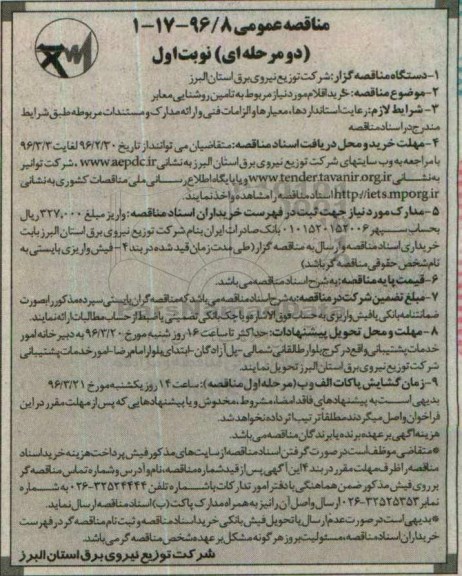 مناقصه عمومی ۹۶/۸-۱۷-۱
(دو مرحله ای) نوبت اول
۱-دستگاه مناقصه گزار: شرکت توزیع نیروی برق استان البرز
۲-موضوع مناقصه: خرید اقلام مورد نیاز مربوط به تامین روشنایی معابر
۳- شرایط لازم: رعایت استانداردها، معیارها و الزامات فنی و ارائه مدارک و مستندات مربوطه طبق شرایط
مندرج در اسناد مناقصه
۴- مهلت خرید و محل دریافت اسناد مناقصه: متقاضیان می توانند از تاریخ ۹۶/۲/۳۰ لغایت ۹۶/۳/۳
با مراجعه به وب سایتهای شرکت توزیع نیروی برق استان البرز به نشانی www.aepdc.ir، شرکت توانیر
به نشانی www.tender.tavanir.org.ir و یا پایگاه اطلاع رسانی ملی مناقصات کشوری به نشانی
http://iets.mporg.ir اسناد مناقصه را مشاهده و اخذ نمایند.
۵- مدارک مورد نیاز جهت ثبت در فهرست خریداران اسناد مناقصه: واریز مبلغ ۳۲۷,۰۰۰ ریال
بحساب سپهر ۰۱۰۱۵۲۰۱۵۲۰۰۶ بانک صادرات ایران بنام شرکت توزیع نیروی برق استان البرز بابت
خریداری اسناد مناقصه و ارسال به مناقصه گزار (طی مدت زمان قید شده در بند ۴- فیش واریزی بایستی به
نام شخص حقوقی مناقصه گر باشد)
۶-قیمت پایه مناقصه: به شرح اسناد مناقصه می باشد.
۷-مبلغ تضمین شرکت در مناقصه: به شرح اسناد مناقصه می باشد که مناقصه گران بایستی سپرده مذکور را بصورت
ضمانتنامه بانکی یا فیش واریزی به حساب فوق الاشاره و یا چک بانکی تضمینی یا ضبط از حساب مطالبات ارائه نمایند.
۸- مهلت و محل تحویل پیشنهادات: حداکثر تا ساعت ۱۶ روز شنبه مورخ ۹۶/۳/۲۰ به دبیرخانه امور
خدمات پشتیبانی واقع در کرج بلوار طالقانی شمالی - پل آزادگان - ابتدای بلوار امام رضا - امور خدمات پشتیبانی
شرکت توزیع نیروی برق استان البرز تحویل نمایند.
۹- زمان گشایش پاکات الف و ب (مرحله اول مناقصه): ساعت ۱۴ روز یکشنبه مورخ ۹۶/۳/۲۱
بدیهی است به پیشنهادهای فاقد امضا، مشروط، مخدوش و یا پیشنهادهایی که پس از مهلت مقرر در این
فراخوان واصل میگردند مطلقا ترتیب اثر داده نخواهد شد.
هزینه آگهی بر عهده برنده یا برندگان مناقصه می باشد.
* متقاضی موظف است در صورت گرفتن اسناد مناقصه از سایت های مذکور فیش پرداخت هزینه خرید اسناد
مناقصه را ظرف مهلت مقرر در بند ۴ این آگهی پس از قید شماره مناقصه، نام و آدرس و شماره تماس مناقصه گر
بر روی فیش مذکور ضمن هماهنگی با دفتر امور تدارکات با شماره تلفن ۳۲۵۲۴۴۴۴-۰۲۶ به شماره
نمابر ۳۲۵۲۵۳۵۳-۰۲۶ ارسال و اصل آن را نیز به همراه مدارک پاکت (ب) اسناد مناقصه ارسال نماید.
* بدیهی است در صورت عدم ارسال یا تحویل فیش بانکی خرید اسناد مناقصه و ثبت نام مناقصه گر در فهرست
خریداران اسناد مناقصه، مسئولیت بروز هر گونه مشکل بر عهده شخص مناقصه گر می باشد.
شرکت توزیع نیروی برق استان البرز